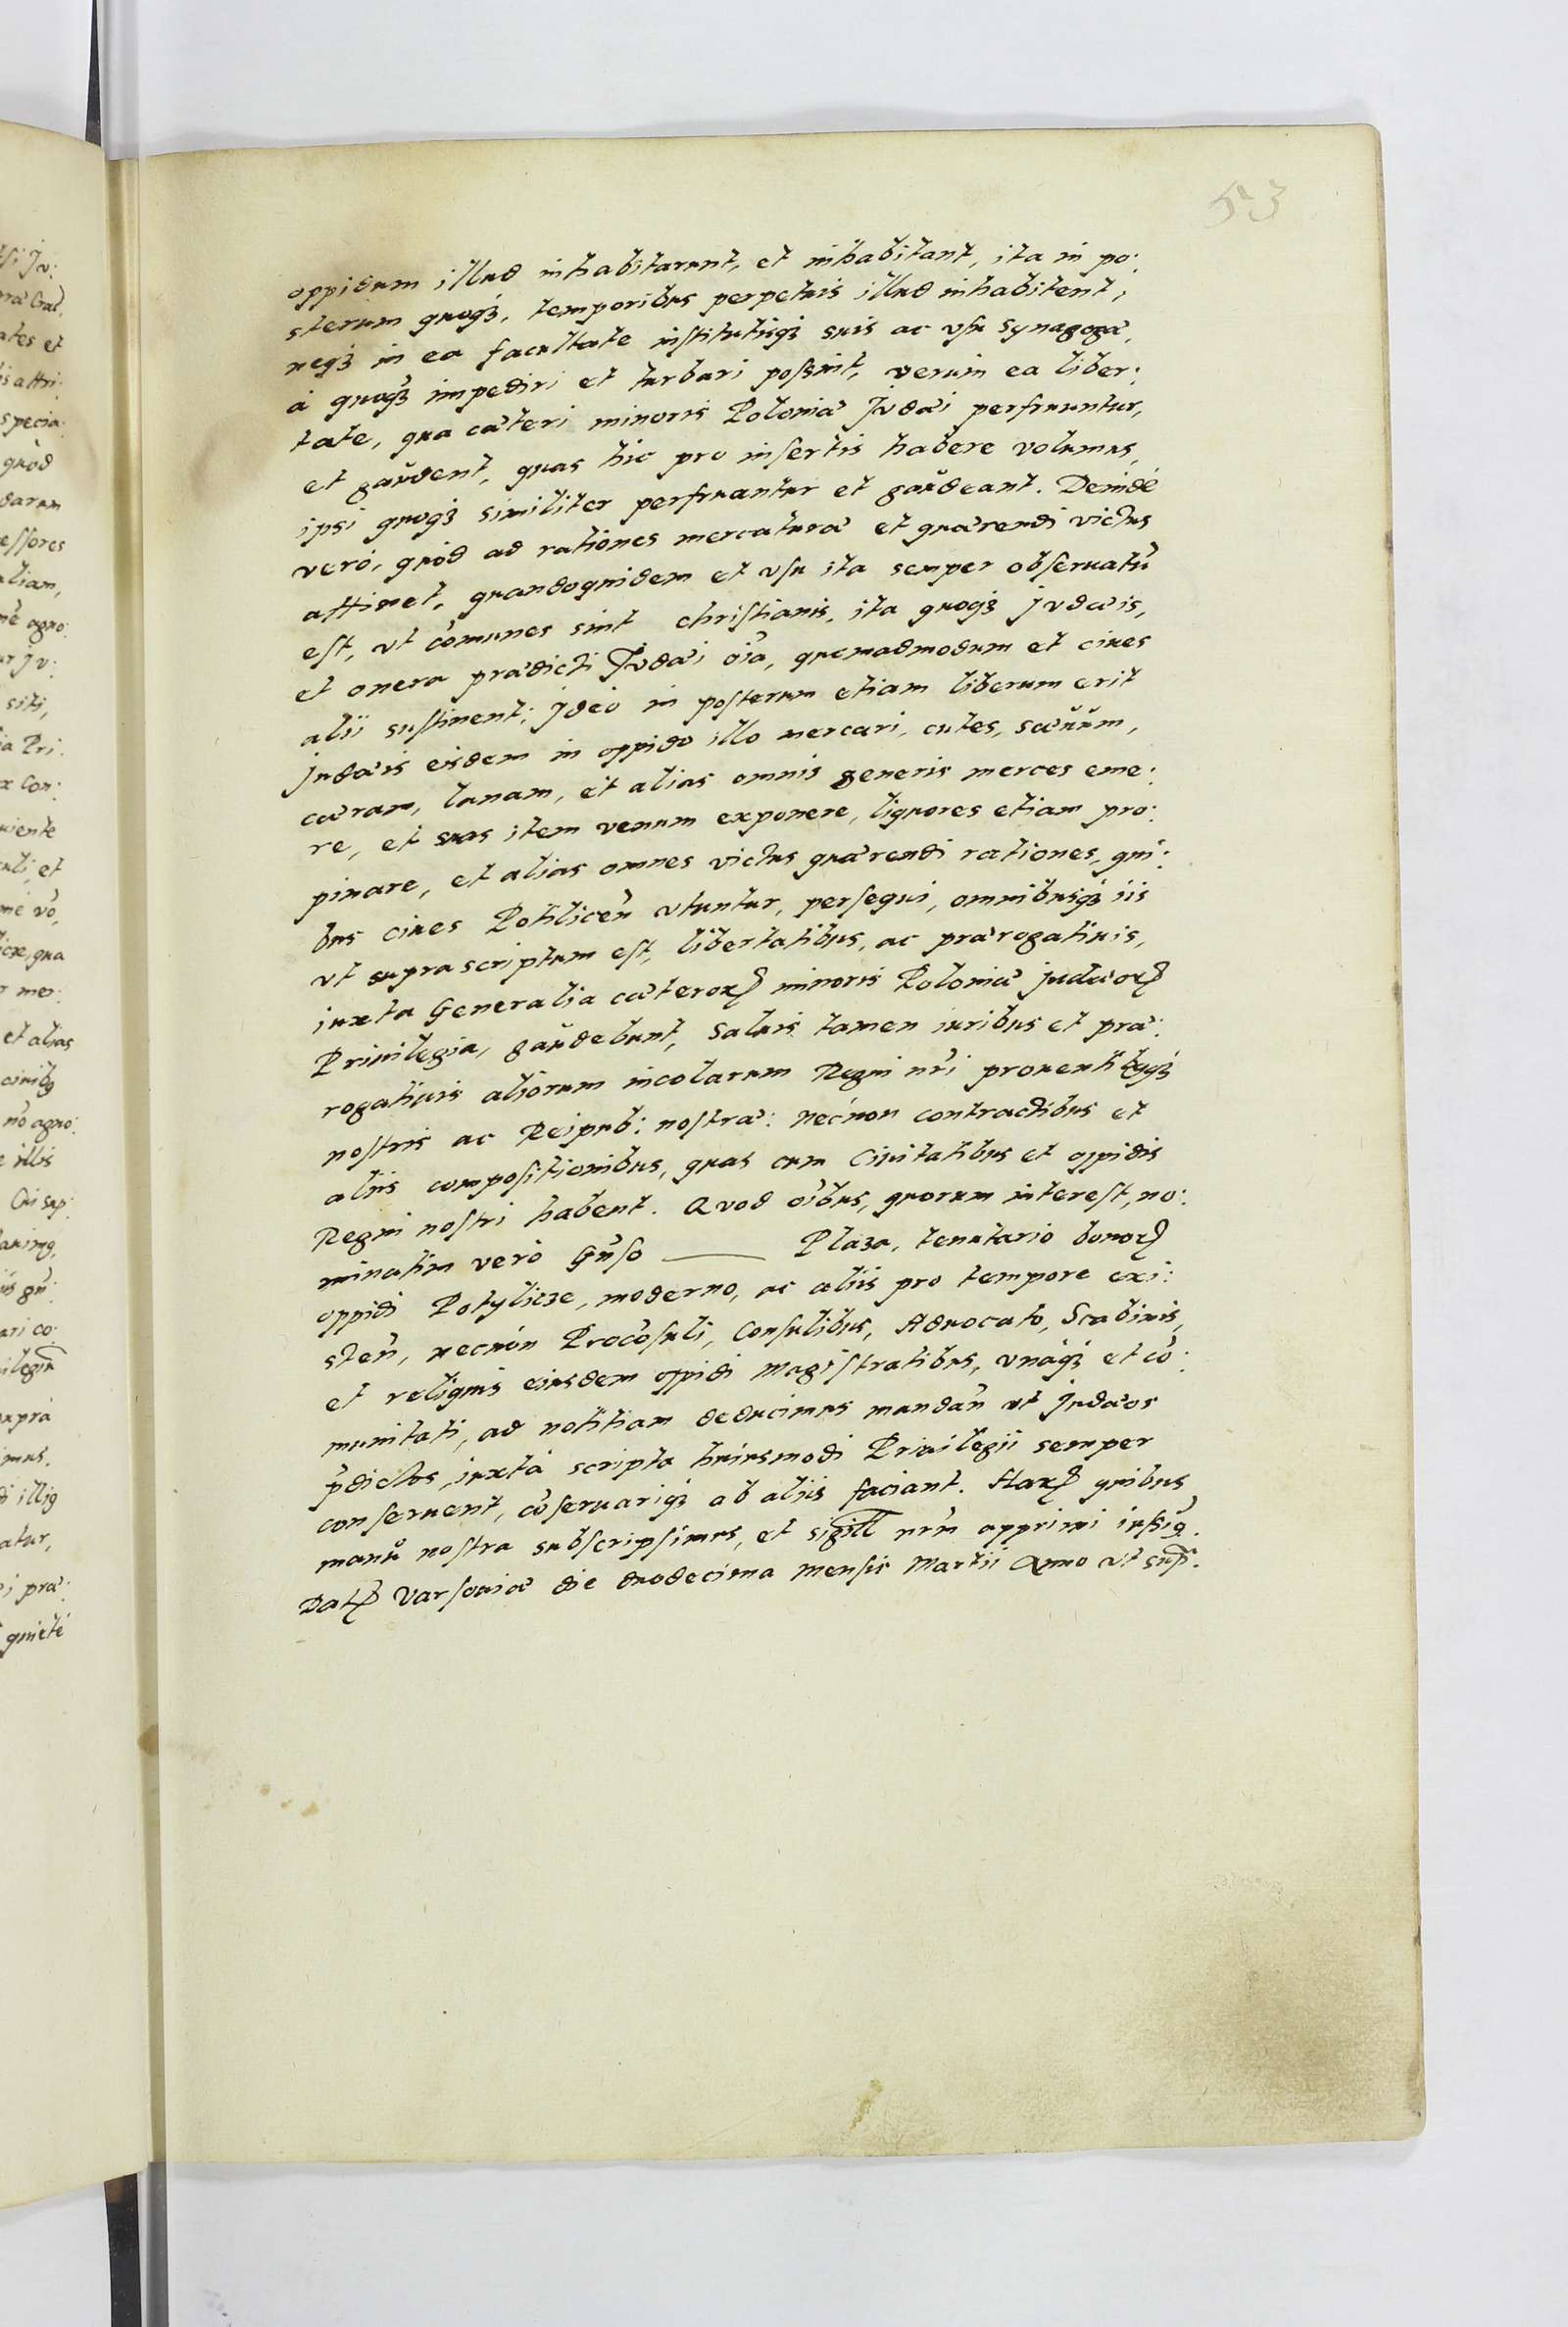 53
oppidum illud inhabitarunt, et inhabitant, ita in po:
sterum quoqȝ, temporibus perpetuis illud inhabitent,
neqȝ in ea facultate institutisqȝ suis ac vsu synagogæ,
à quoqȝ impediri et turbari possint, verum ea liber:
tate, qua cæteri minoris Poloniæ Judæi perfruuntur,
et gaudent, quas hic pro insertis habere volumus,
ipsi quoqȝ similiter perfruantur et gaudeant. Deinde
vero, quod ad rationes mercaturæ et quærendi victus
attinet, quandoquidem et vsu ita semper obseruatũ
est, vt cõmunes sint christianis, ita quoqȝ judæis,
et onera prædicti Judæi oĩa, quemadmodum et ciues
alii sustinent; Jdeò in posterum etiam liberum erit
judæis eisdem in oppido illo mercari, cutes, sæuum,
cæram, lanam, et alias omnis generis merces eme:
re, et suas item venum exponere, liquores etiam pro:
pinare, et alias omnes victus quærendi rationes, qui:
bus ciues Potilicen̄ vtuntur, persequi, omnibusqȝ iis
vt supra scriptum est, libertatibus, ac prærogatiuis,
iuxta Generalia cæteroꝝ minoris Poloniæ judæoꝝ
Priuilegia, gaudebunt, Saluis tamen iuribus et præ:
rogatiuis aliorum incolarum Regni nr̃i prouentibqȝ
nostris ac Reipub: nostræ: necnon contractibus et
aliis compositionibus, quas cum Ciuitatibus et oppidis
Regni nostri habent. Quod oĩbus, quorum interest, no:
minatim verò Gñso —— Plaza, tenutario bonoꝝ
oppidi Potylicze, moderno, ac aliis pro tempore exi:
sten̄, necnòn Procõsuli, Consulibus, Aduocato, Scabinis,
et reliquis eiusdem oppidi Magistratibus, vnàqȝ et cõ:
munitati, ad notitiam deducimus mandan̄ vt judæos
p̃dictos, iuxtà scripta huiusmodi Priuilegii semper
conseruent, cõseruariqȝ ab aliis faciant. Haꝝ quibus
manu nostra subscripsimus, et sigill nr̃m apprimi iussiꝰ.
Datꝝ Varsouiæ die duodecima Mensis Martii Anno vt sup̃.